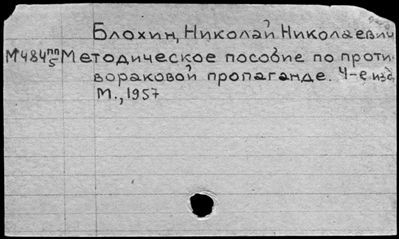 Блохин, Николай Николаевич
М484 пп/5 Методическое пособие по проти-
вораковой пропаганде. 4-е изд.
М., 1957